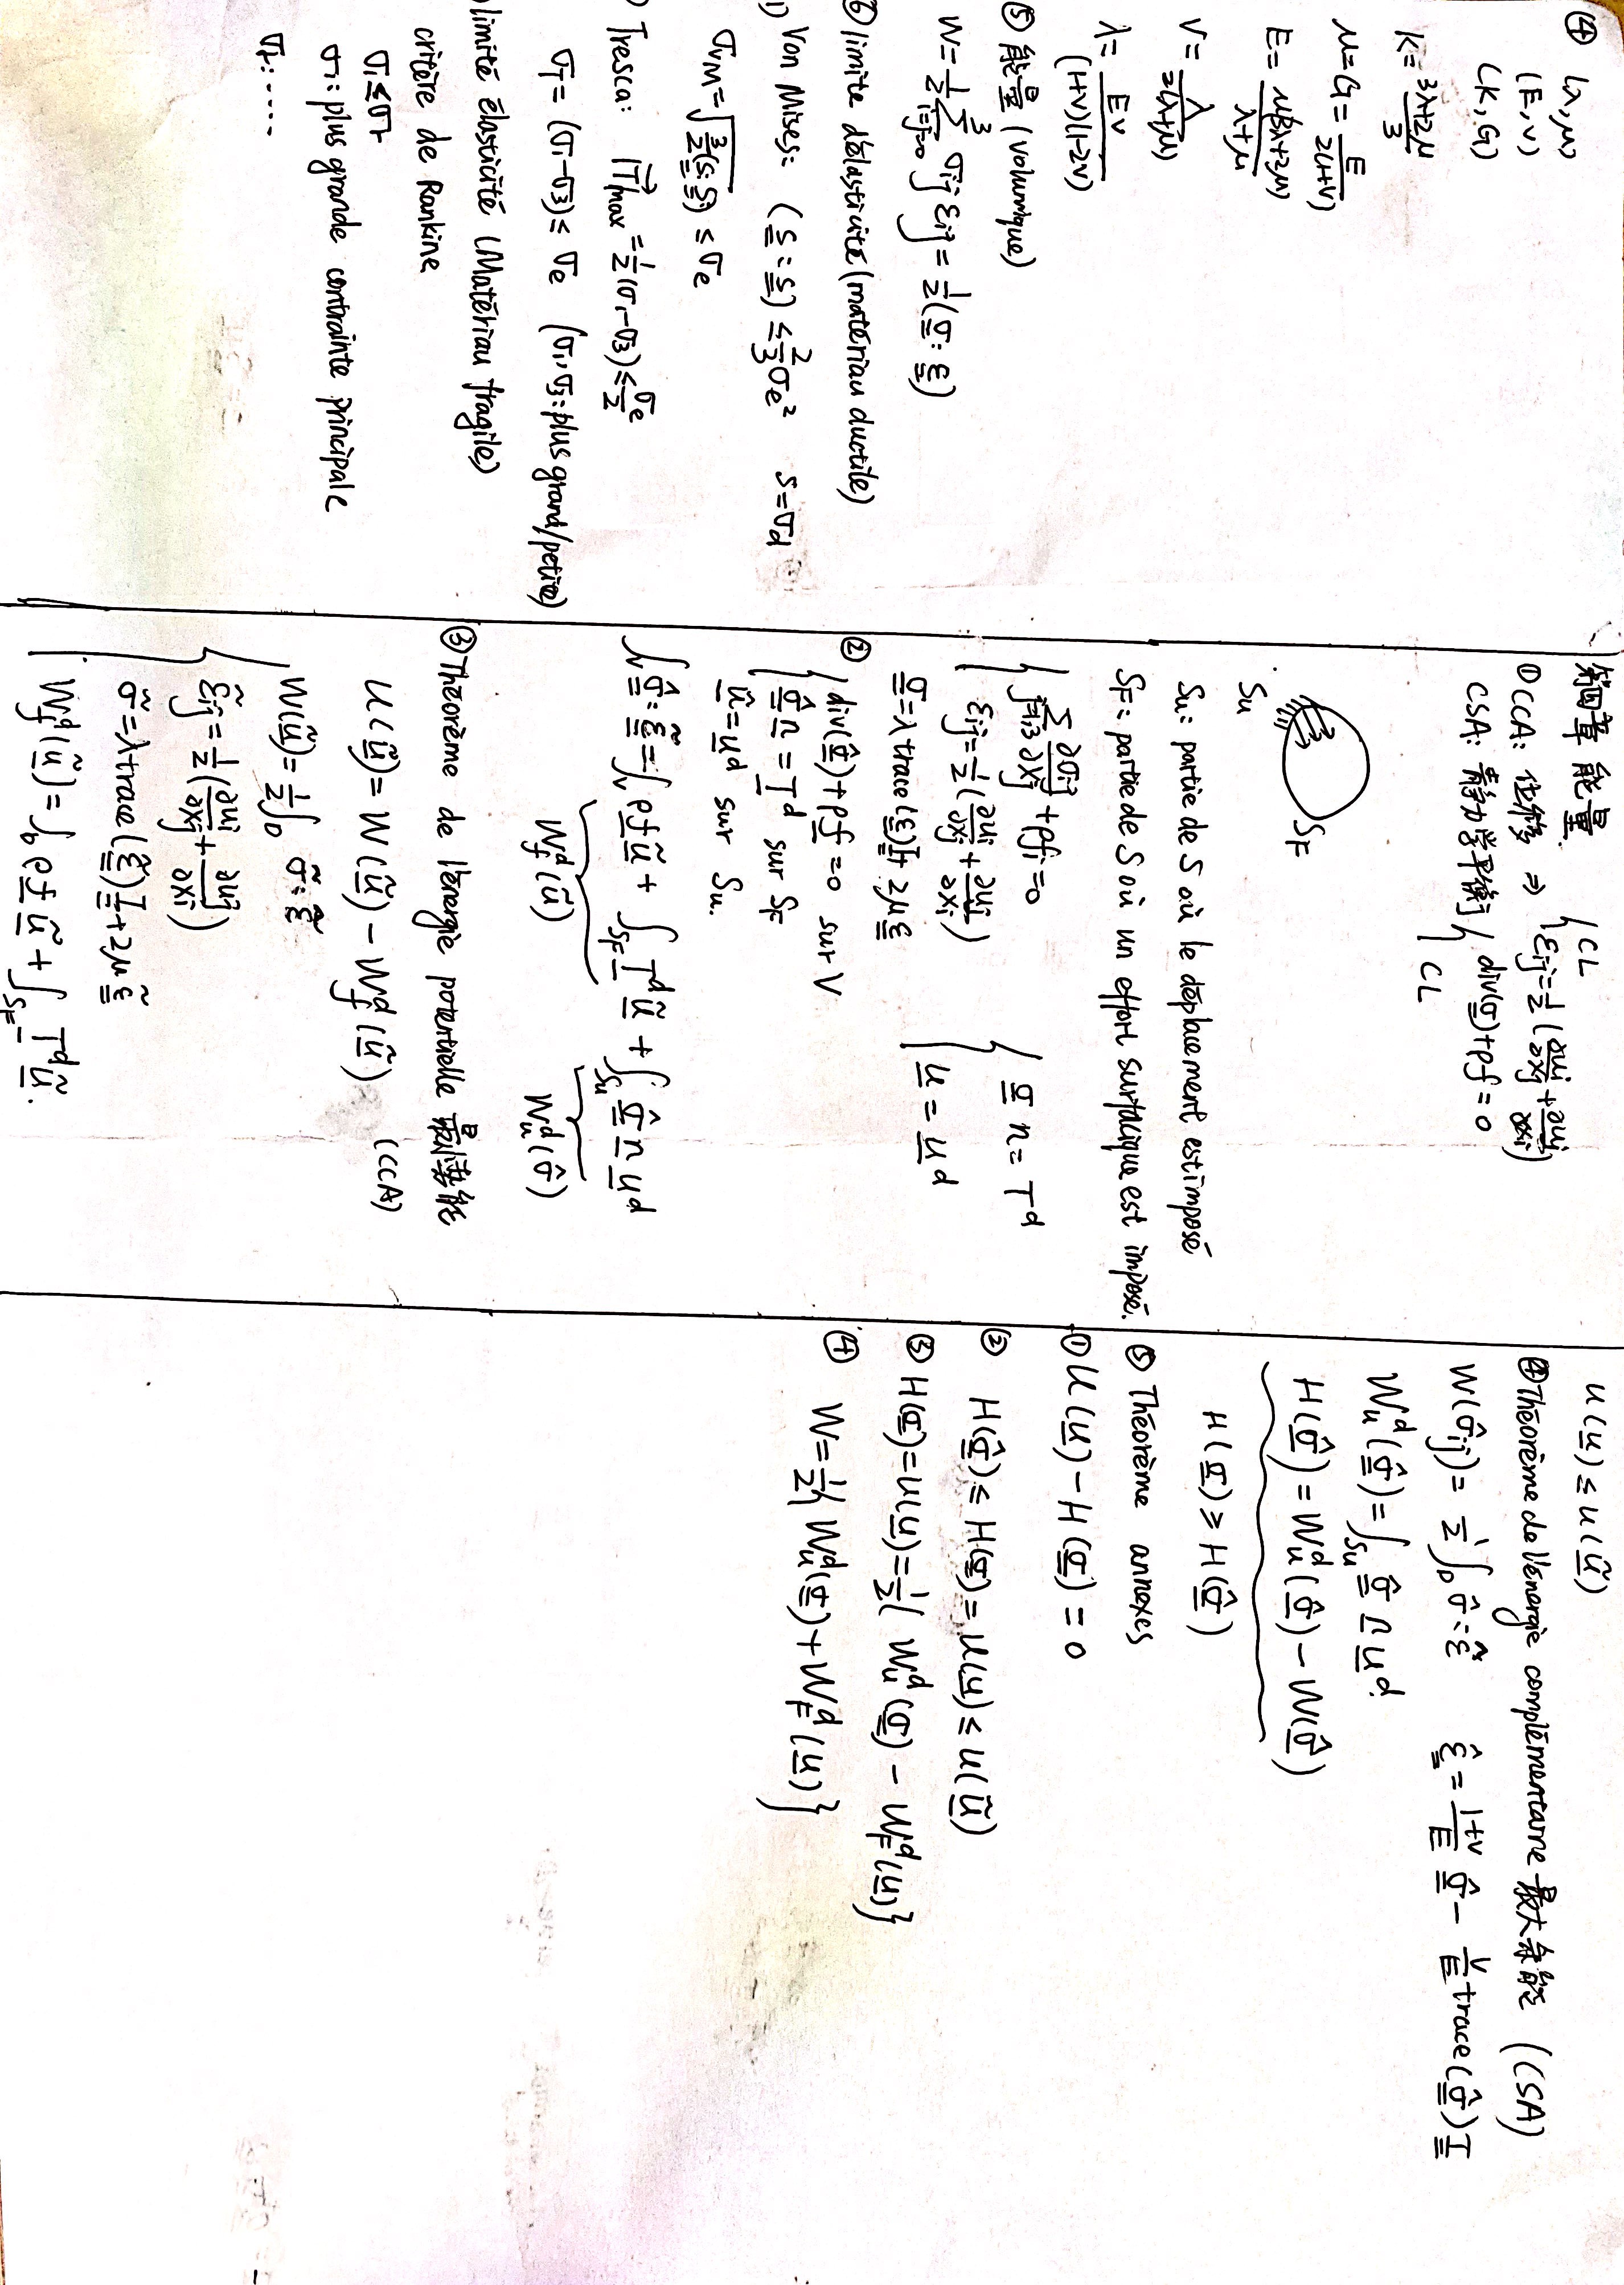 ④ (λ,μ)
(E,ν)
(K,G)
K=(3λ+2μ)/3
μ=G=E/(2(1+ν))
E=μ(3λ+2μ)/(λ+μ)
ν=λ/(2(λ+μ))
λ=Eν/((1+ν)(1-2ν))
⑤ 能量 (volumique)
W=1/2 Σ_{i=j=0}^{3} σij εij = 1/2(σ:ε)
⑥ limite d'élasticité (matériau ductile)
1) Von Mises: (s:s) ≤ 2/3 σe² s=σd
σVM=√(3/2(s:s)) ≤ σe
Tresca: |T|max=1/2(σ1-σ3)≤σe/2
σT=(σ1-σ3)≤ σe (σ1,σ3:plus grand/petite)
limité élasticité (Matériau fragile)
critère de Rankine
σ1≤σr
σ1: plus grande contrainte principale
σr: ····
第四章 能量
① CCA: 位移 ⇒ { CL
εij=1/2(∂ui/∂xj+∂uj/∂xi)
CSA: 静力学平衡 { div(σ)+ρf=0
CL
SF
Su
Su: partie de S où le déplacement est imposé
SF: partie de S où un effort surfacique est imposé.
{ Σ_{j=1,3} ∂σij/∂xj +ρfi=0
εij=1/2(∂ui/∂xj+∂uj/∂xi)
σ=λ trace(ε)I+2με
{ σ n= T^d
u = u^d
② { div(σ̂)+ρf=0 sur V
σ̂ n = T^d sur SF
û=u^d sur Su.
∫_V σ̂:ε̃=∫_V ρf ũ + ∫_SF T^d ũ + ∫_Su σ̂ n u^d
W_f^d(ũ) W_u^d(σ̂)
③ Théorème de l'énergie potentielle 最小势能
U(ũ)= W(ũ) - W_f^d(ũ) (CCA)
{ W(ũ)= 1/2∫_D σ̃:ε̃
ε̃ij=1/2(∂ui/∂xj+∂uj/∂xi)
σ̃=λ trace(ε̃)I+2με̃
W_f^d(ũ)=∫_D ρf ũ+∫_SF T^d ũ.
U(u)≤U(ũ)
④ Théorème de l'énergie complémentarre 最大余能 (CSA)
W(σ̂ij)= 1/2∫_D σ̂:ε̂ ε̂=(1+ν)/E σ̂ - ν/E trace(σ̂)I
W_u^d(σ̂)=∫_Su σ̂ n u^d.
H(σ̂)=W_u^d(σ̂)-W(σ̂)
H(σ)≥H(σ̂)
⑤ Théorème annexes
① U(u)-H(σ)=0
② H(σ̂)≤H(σ)=U(u)≤U(ũ)
③ H(σ)=U(u)=1/2{ W_u^d(σ) - W_F^d(u)}
④ W=1/2{ W_u^d(σ)+W_F^d(u)}